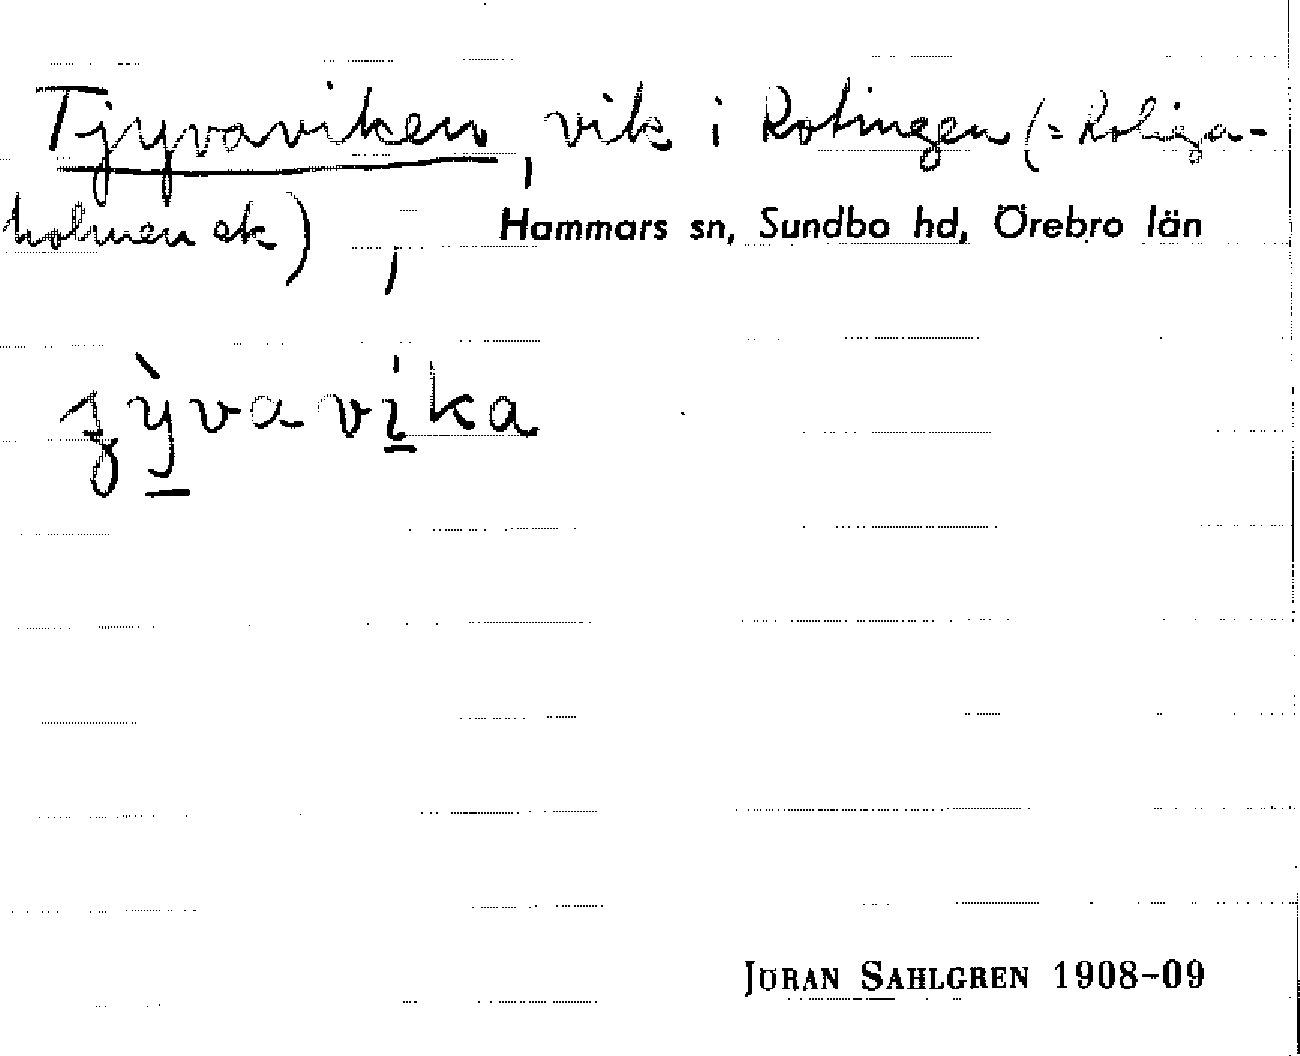 Tjyvaviken, vik i Rotingen (= Roliga-
holmen ek),
Hammars sn, Sundbo hd, Örebro län
ȥỳvavika
JÖRAN SAHLGREN 1908-09